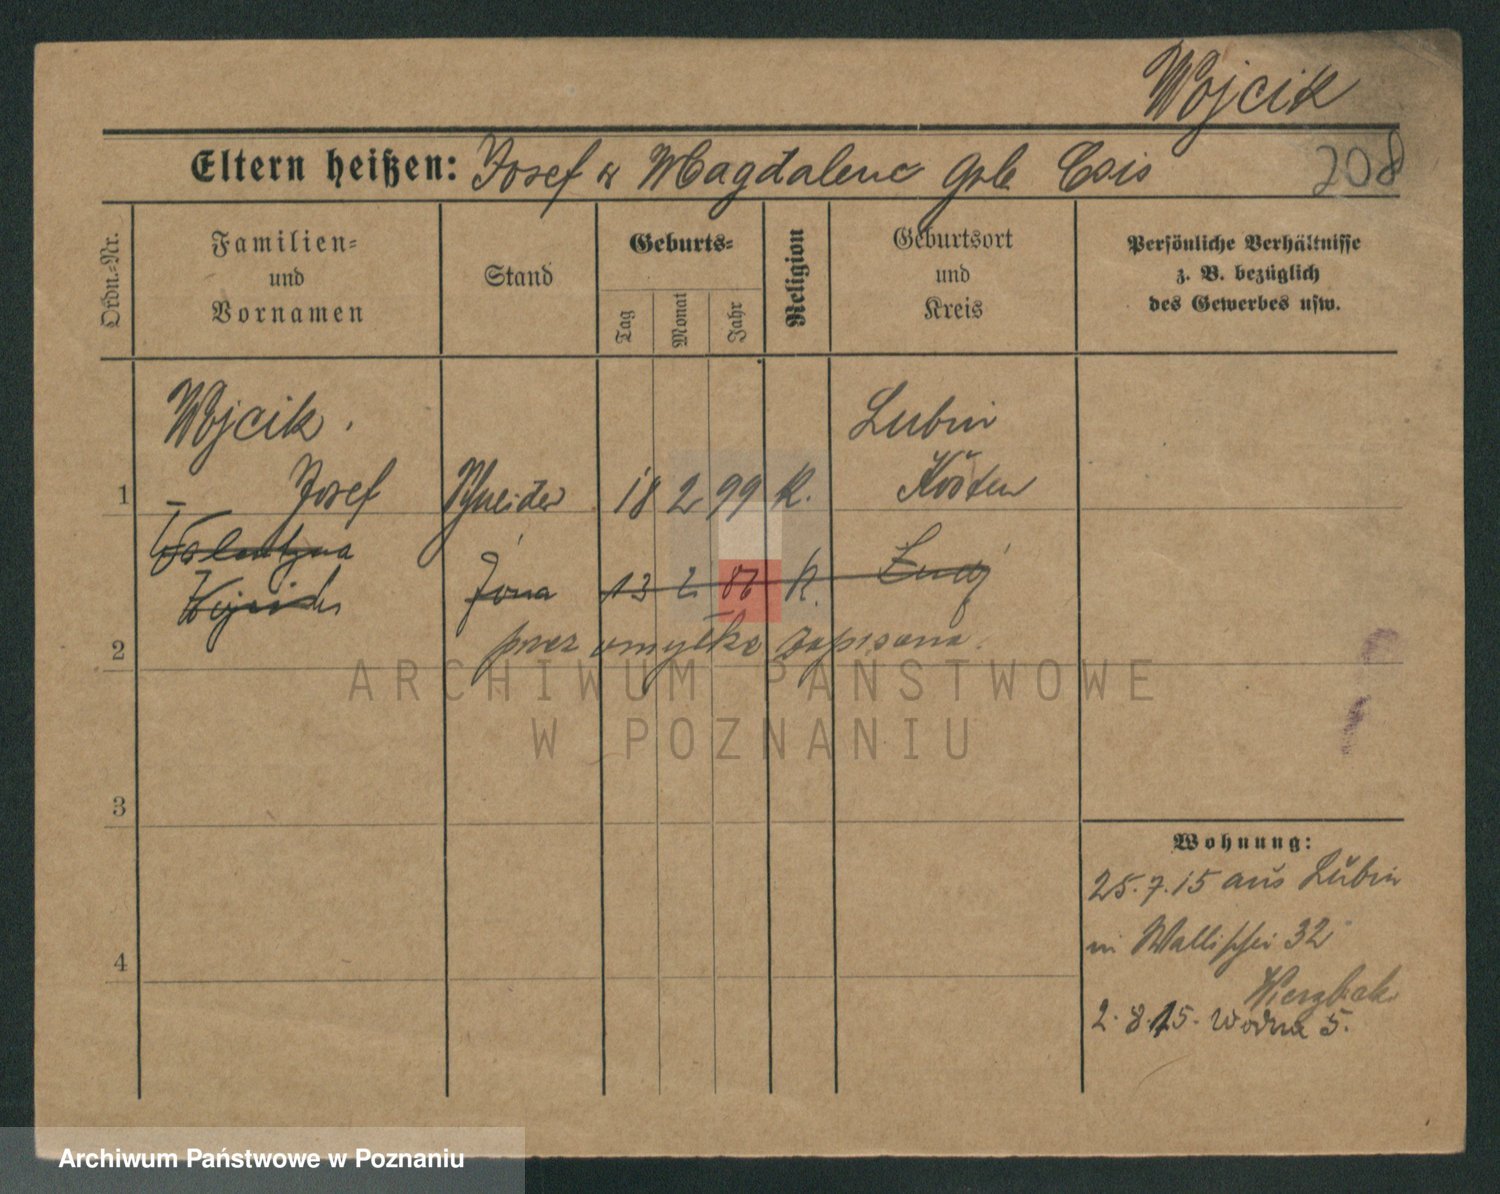 Wojcik
Eltern heißen: Josef & Magdalene geb Csis
208
Ordn.-Nr.
Familien-
und
Vornamen
Stand
Geburts-
Tag
Monat
Jahr
Religion
Geburtsort
und
Kreis
Persönliche Verhältnisse
z. B. bezüglich
des Gewerbes usw.
Wojcik.
Lubin
1 Josef Schneider 18 2 99 K. Kosten
Walentyna
żona 13 2 K.
2 przez omyłkę zapisana.
3
4
Wohnung:
25.7.15 aus Lubin
in Wallischei 32
Wierzbicki
2.8.25. Wodna 5.
ARCHIWUM PAŃSTWOWE
W POZNANIU
Archiwum Państwowe w Poznaniu